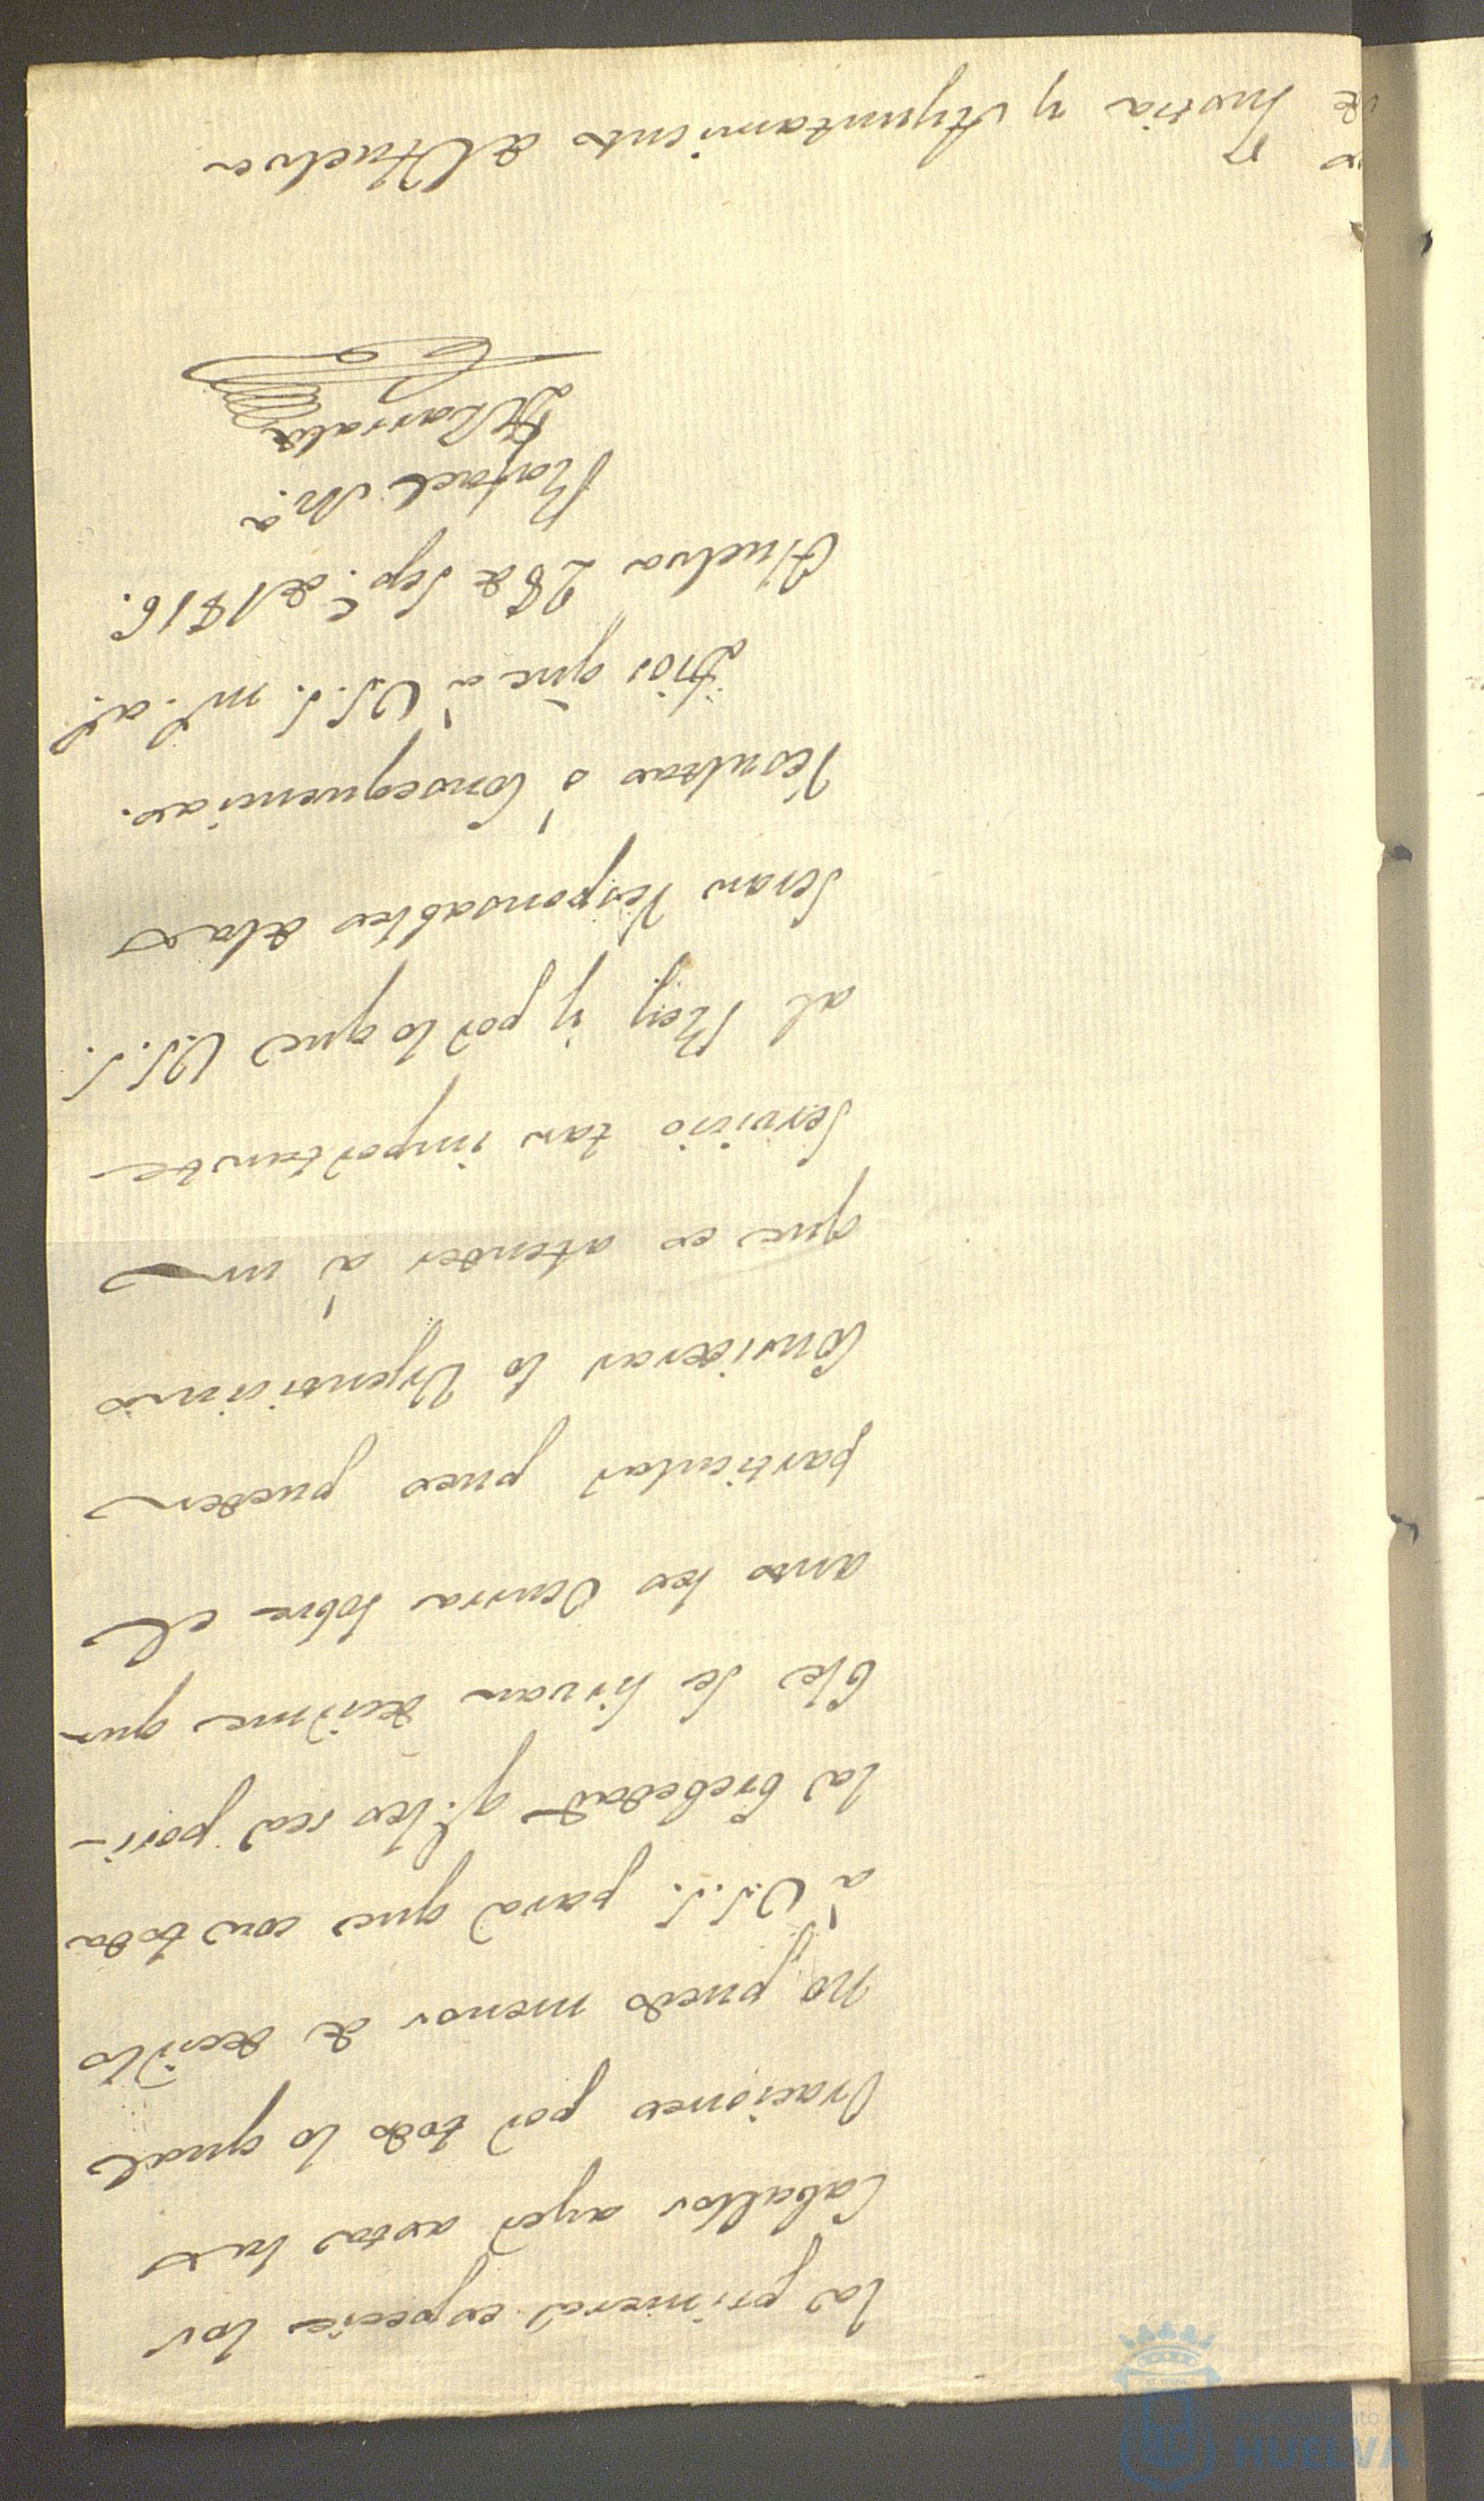 la primera especie los
Caballos ayer asta las
Oraciones por todo lo qual
no puedo menos de decirlo
à V.S.S. para que con toda
la brebedad q.e les sea posi-
ble se sirvan decirme qu-
anto les Ocurra sobre el
particular pues pueden
Considerar lo Urgentisimo
que es atender à un
Servicio tan importante
al Rey y por lo que V.S.S.
Seran Responsables de las
Resultas ó Consequencias.
Dios gue à V.S.S. m.s a.s
Huelva 28 de Sep.e de 1816.
Rafael M.a
de
Justicia y Ayuntamiento de Huelva
HUELVA